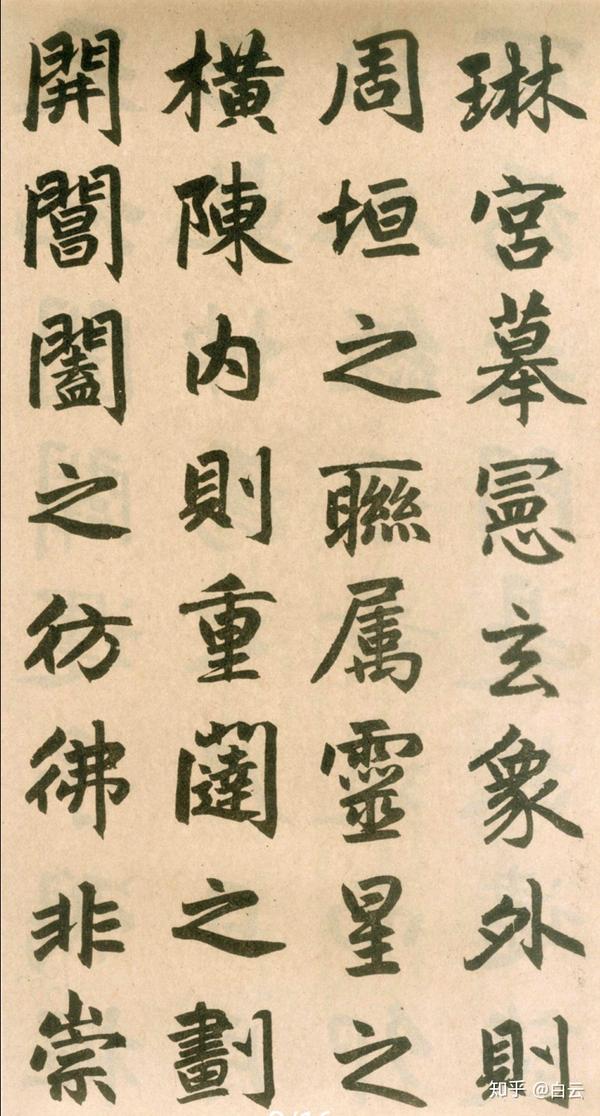 琳宮摹憲玄象外則
周垣之聯属靈星之
橫陳内則重闥之劃
開閶闔之彷彿非崇
知乎 @白云